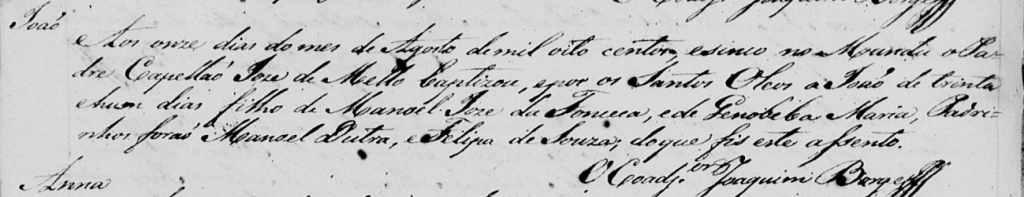 João
Aos onze dias do mes de Agosto de mil oito centos, e sinco no Mundú o Pa-
dre Capellaõ Joze de Mello baptizou, e poz os Santos Oleos a João de trinta
e hum dias filho de Manoel Joze da Fonceca, e de Genobeba Maria, Padri-
nhos foraõ Manoel Dutra, e Felipa de Souza; do que fis este assento.
O Coadj.or Joaquim Borges
Anna